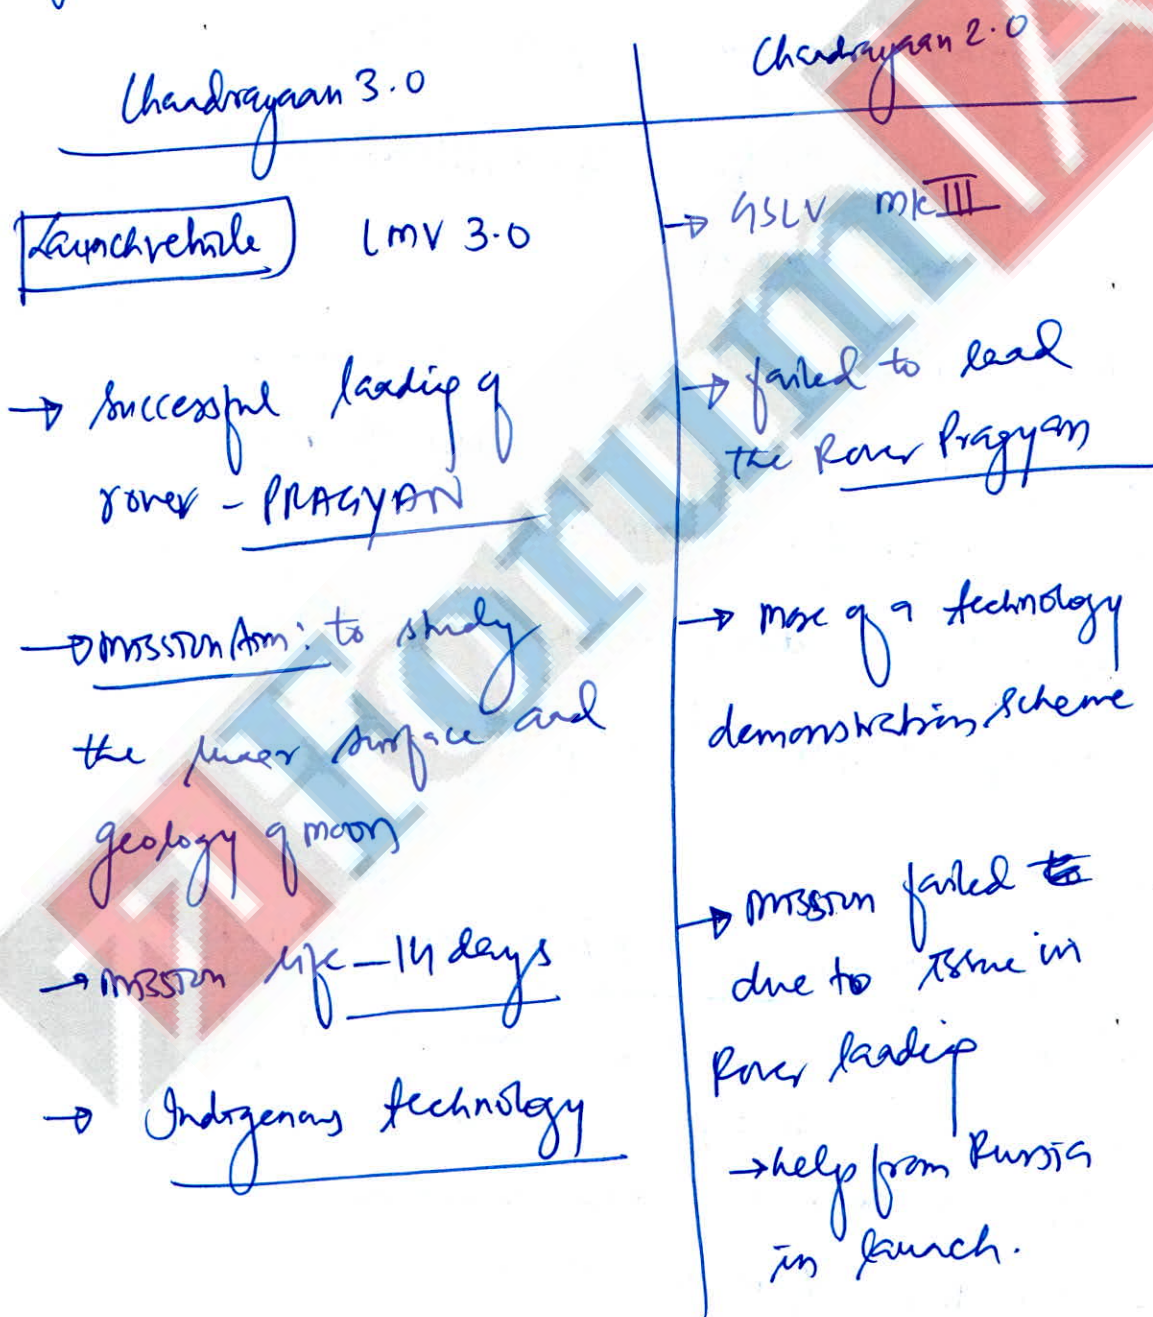 Chandrayaan 3.0
Launch vehicle LMV 3.0
→ Successful landing of
rover - PRAGYAN
→ Mission Aim: to study
the lunar surface and
geology of moon
→ Mission life - 14 days
→ Indigenous technology
Chandrayaan 2.0
→ GSLV MK III
→ failed to land
the Rover Pragyan
→ more of a technology
demonstration scheme
→ Mission failed
due to issue in
Rover landing
→ help from Russia
in launch.
Forum IA